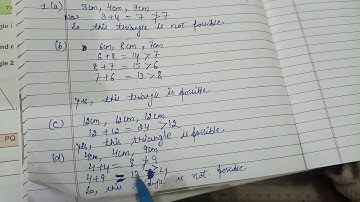 1. (a) 3cm, 4cm, 7cm
3+4 = 7 ≯7
So this triangle is not possible.
(b) 6cm, 8cm, 7cm
6+8 = 14 > 7
8+7 = 15 > 6
7+6 = 13 > 8
Yes, this triangle is possible
(c) 12cm, 12cm, 12cm
12+12 = 24 > 12
Yes, this triangle is possible
(d) 4cm, 4cm, 9cm
4+4 = 8 ≯ 9
4+9 = 13 > 4
So, this is not possible.
PQ